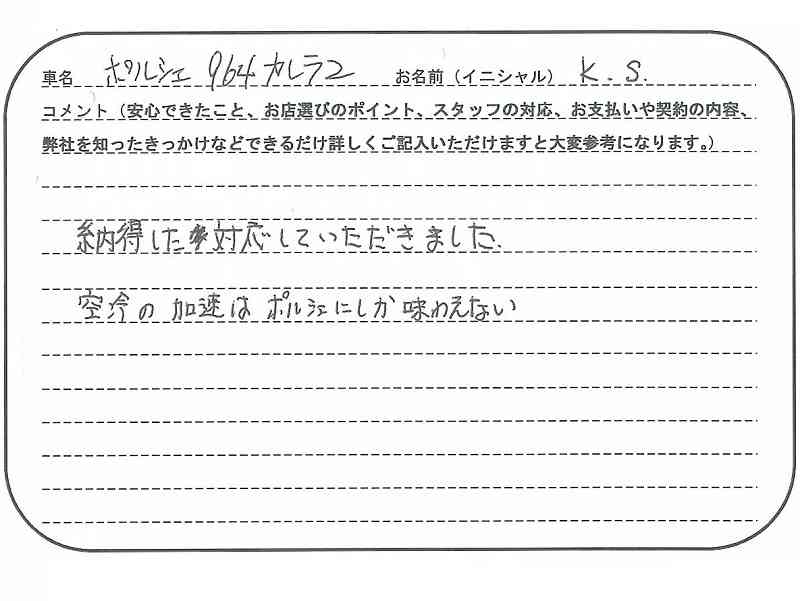 車名 ポルシェ 964 カレラ2 お名前（イニシャル） K.S.
コメント（安心できたこと、お店選びのポイント、スタッフの対応、お支払いや契約の内容、
弊社を知ったきっかけなどできるだけ詳しくご記入いただけますと大変参考になります。）
納得した対応していただきました.
空冷の加速はポルシェにしか味わえない